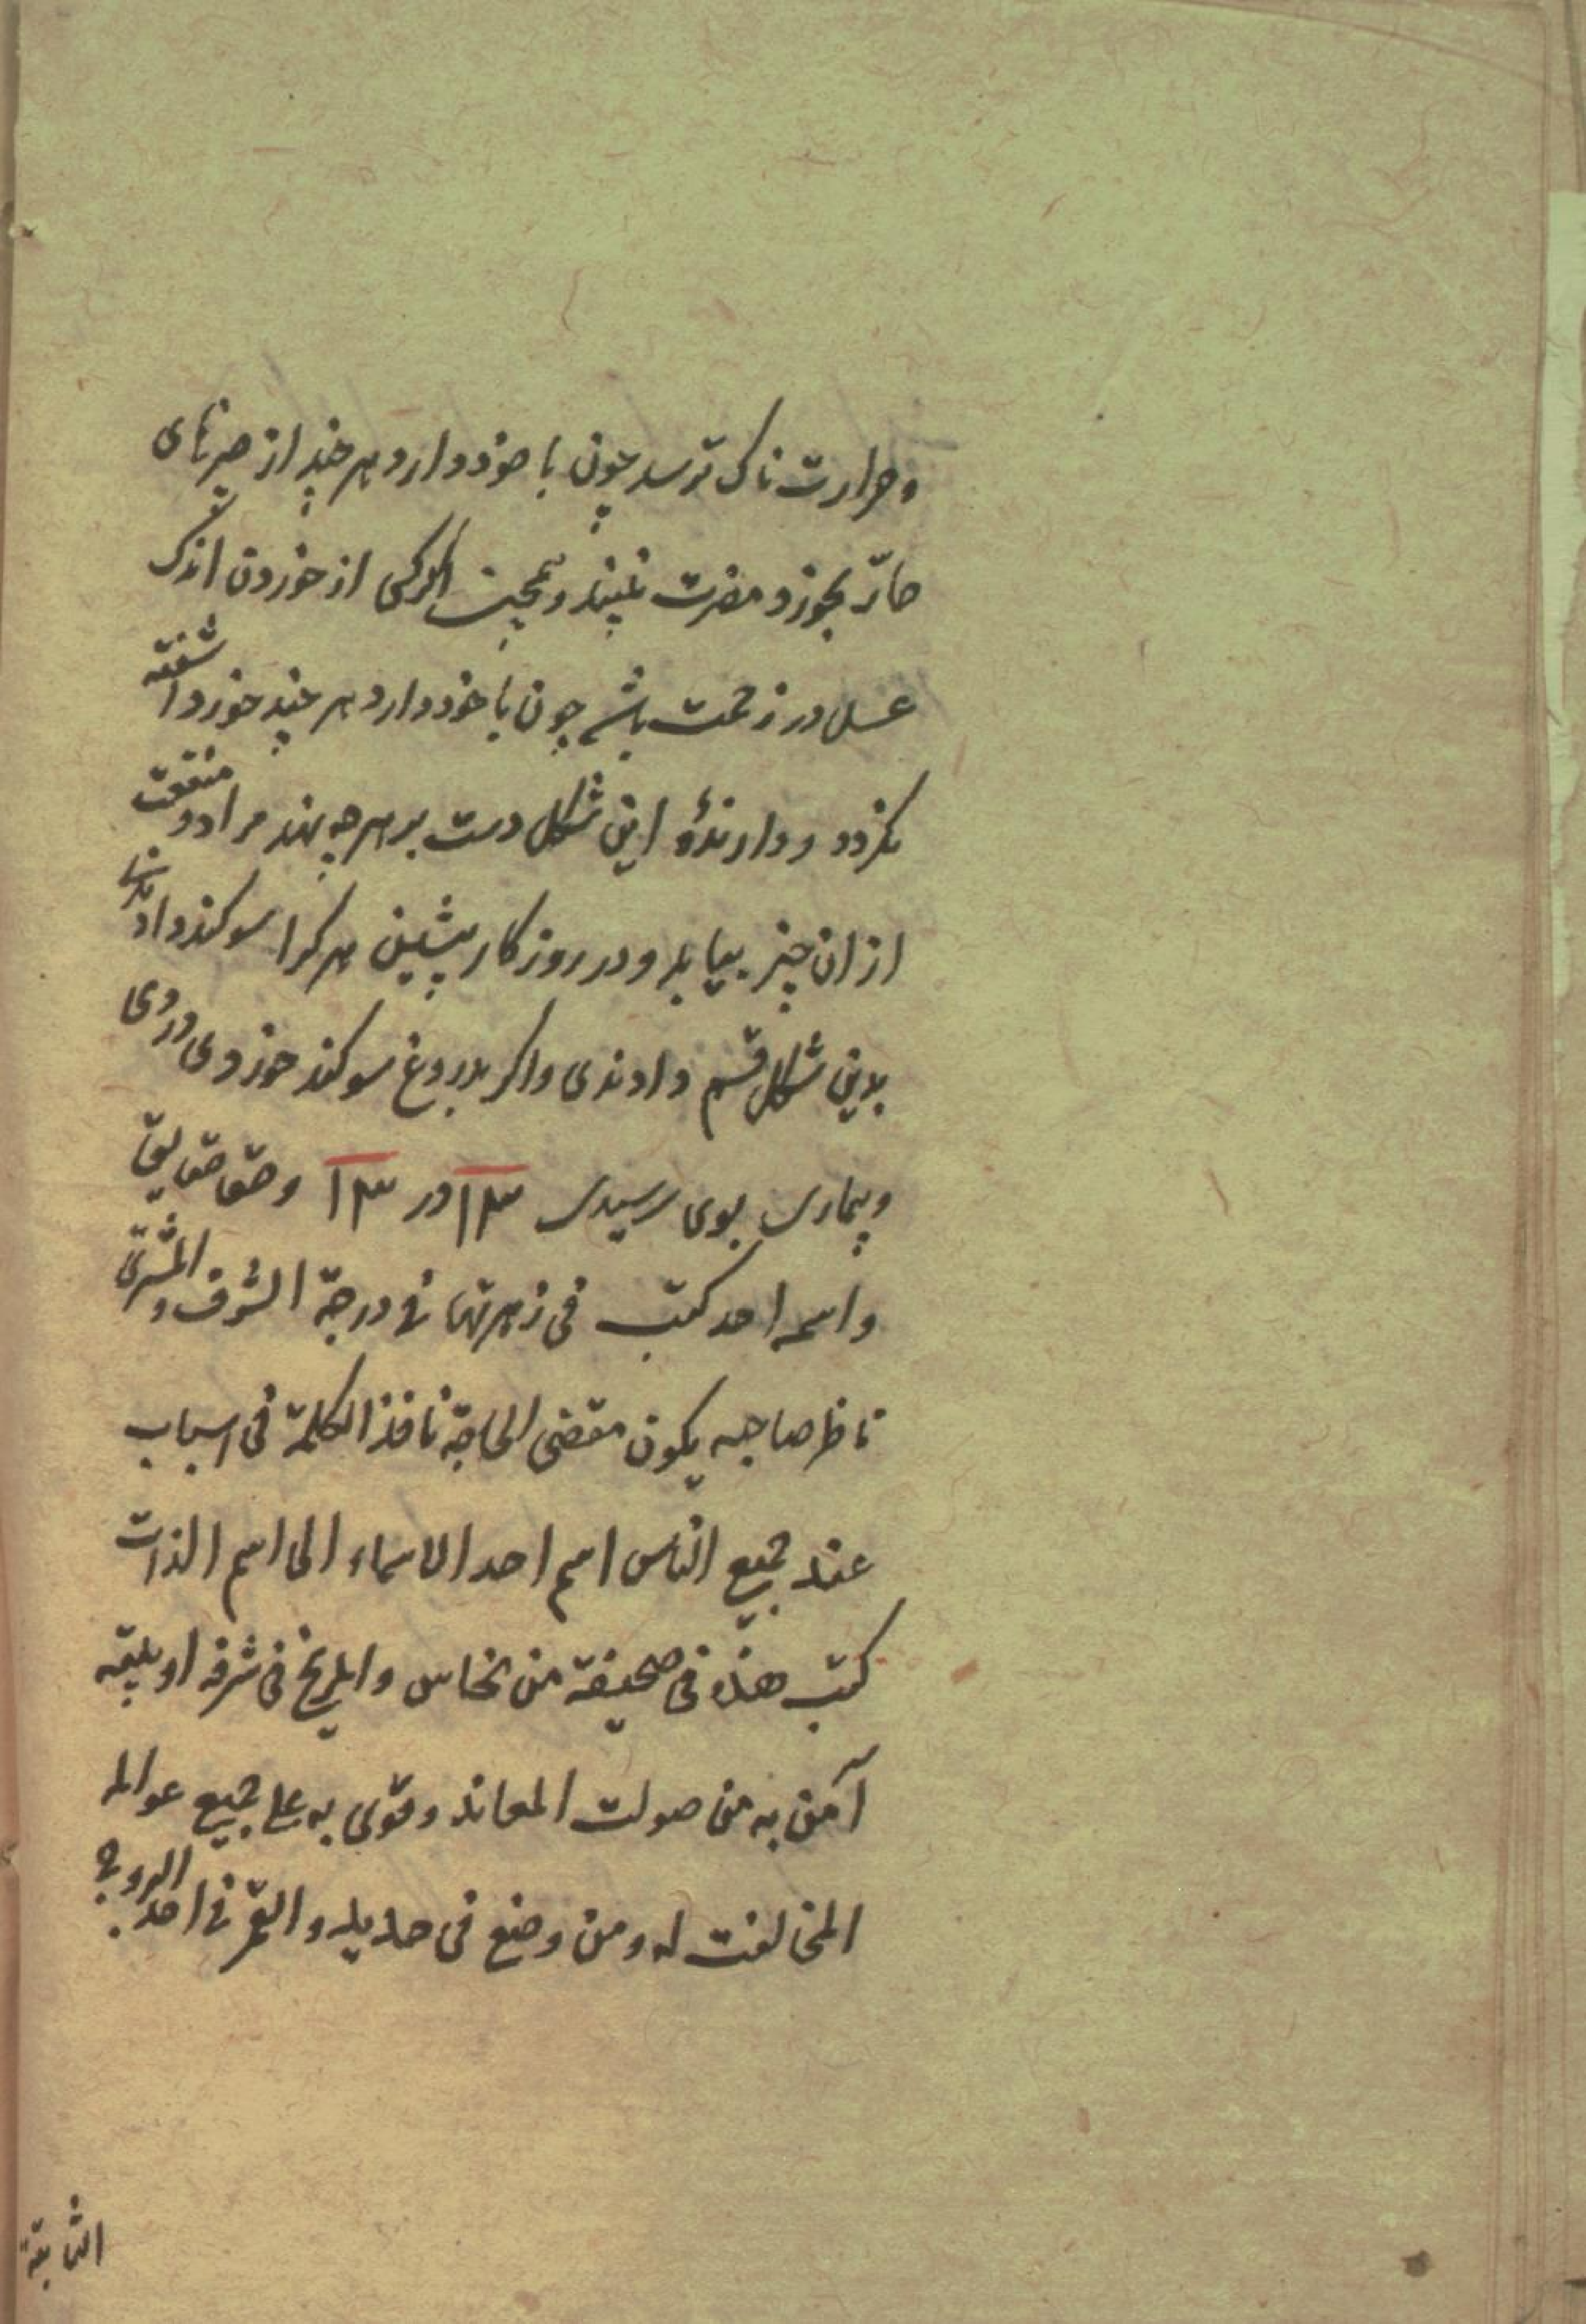 و حرارت ناک ترسد چون با خود دارد هر چند از چیزهای
حارّ بخورد مضرت نبیند و همچنین اگر کسی از خوردن اندک
عسل در زحمت باشد چون با خود دارد هر چند خورد آشفته
نکردد و دارندهٔ این شکل دست بر هر چه نهد مراد و منفعت
از ان چیز بیابد و در روزکار پیشین هر کرا سوکند دادندی
بدین شکل قسم دادندی واکر بدروغ سوکند خوردی دردی
و بیماری بوی رسیدی ۱۳ در ۱۳
واسمه احد کتب فی زهرتها فی درجة الشرف والمشتری
ناظر صاحبه یکون مقضی الحاجة نافذ الکلمة فی اسباب
عند جمیع الناس اسم احد الاسماء الی اسم الذات
کتب هذه فی صحیفة من نحاس والمریخ فی شرفه او بیته
آمن به من صولت المعاند وقوی به علی جمیع عوالمه
المخالفت له ومن وضع فی حدید والقمر فی احد البروج
الثابتة